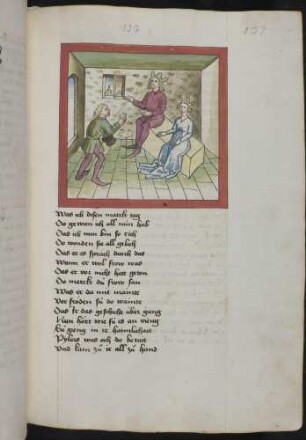 137
137
Was ich disen marckt tag
Do gewan ich all min hab
Das ich nun bin so rich
Do wonden sie all gelich
Das er es sprach durch das
Wann er wol frow was
Das er vor nicht hett geton
Do marckt du frow san
Was er da mit mainte
Vor froden sú do wainte
Das Ir das geschehe úber gieng
Nun hört wie sú es an vieng
Sú gieng in ir haimlichait
Pylois was och do berait
Und kam zú ir all zú hand